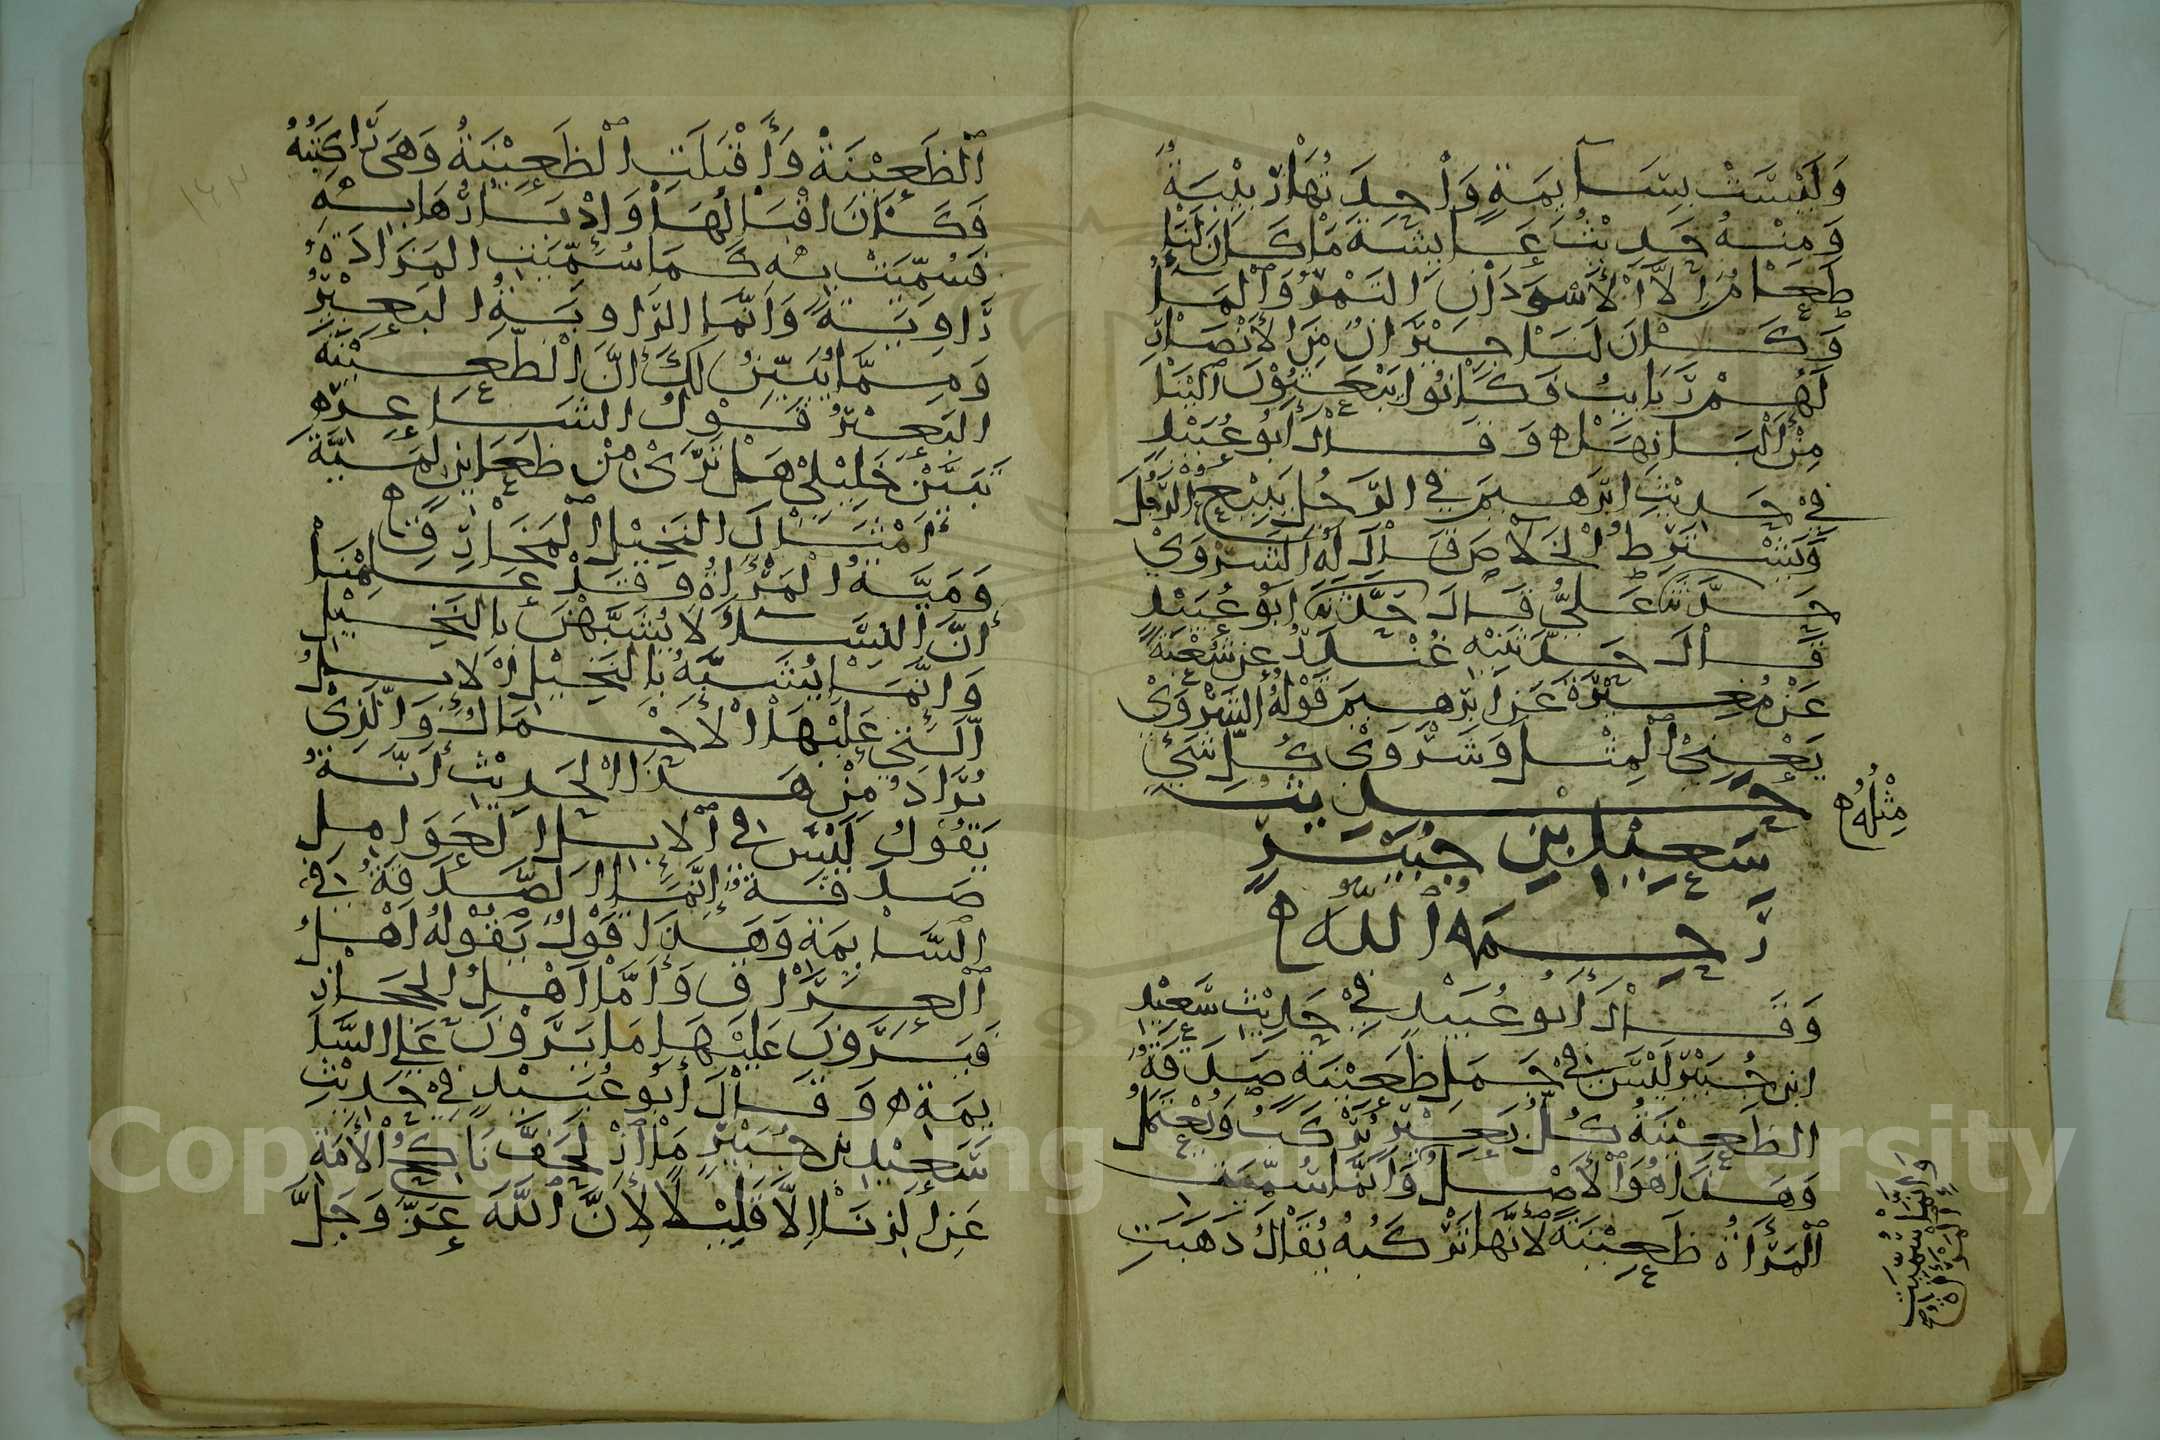 وَلَيْسَتْ بِسَائِمَةٍ وَاحِدَتُهَا رَبِيْبَةٌ
وَمِنْهُ حَدِيْثُ عَائِشَةَ مَا كَانَ لَنَا
طَعَامٌ إِلَّا الْأَسْوَدَانِ التَمْرُ وَالْمَاءُ
وَكَانَ لَنَا جِيْرَانٌ مِنَ الْأَنْصَارِ
لَهُمْ رَبَايِبُ وَكَانُوا يَبْعَثُوْنَ إِلَيْنَا
مِنْ أَلْبَانِهَا ه وَقَالَ أَبُو عُبَيْدٍ
فِيْ حَدِيْثِ ابْرَهِيمَ فِي الرَّجُلِ يَبِيْعُ الرَّجُلَ
وَيَشْتَرِطُ الْخَلَاصَ قَالَ لَهُ الشَّرْوَىْ
حَدَّثَنَا عَلِيٌّ قَالَ حَدَّثَنَا أَبُو عُبَيْدٍ
قَالَ حَدَّثَنِيْهِ غُنْدَرٌ عَنْ شُعْبَةَ
عَنْ مُغِيْرَةَ عَنْ ابْرَهِيمَ قَوْلُهُ الشَّرْوَىْ
يَعْنِىْ الْمِثْلَ وَشَرْوَىْ كُلِّ شَىْءٍ
مِثْلُهُ ه
حَدِيْثُ
سَعِيْدِ بْنِ جُبَيْرٍ
رَحِمَهُ اللّٰهُ ه
وَقَالَ أَبُو عُبَيْدٍ فِيْ حَدِيْثِ سَعِيْدِ
ابْنِ جُبَيْرٍ لَيْسَ فِيْ جَمَلِ ظَعِيْنَةٍ صَدَقَةٌ
الظَعِيْنَةُ كُلُّ بَعِيْرٍ يُرْكَبُ وَيُعْتَمَلُ
وَهَذَا هُوَ الْأَصْلُ وَانَّمَا سُمِّيَتِ
الْمَرْأَةُ ظَعِيْنَةً لِأَنَّهَا تَرْكَبُهُ يُقَالُ ذَهَبَتِ
وَإِنَّمَا سُمِّيَتِ
الْمَرْأَةُ
الْظَعِيْنَةُ وَأَقْبَلَتِ الْظَعِيْنَةُ وَهِىَ رَاكِبَتُهُ
فَكَانَ اقْبَالُهَا وَإِدْبَارُهَا بِهِ
فَسُمِّيَتْ بِهِ كَمَا سُمِّيَتِ المَزَادَةُ
رَاوِيَةً وَانَّمَا الرَّاوِيَةُ الْبَعِيْرُ
وَمِمَّا يُبَيِّنُ لَكَ أَنَّ الْظَعِيْنَةَ
الْبَعِيْرُ قَوْلُ الشَّاعِرِ ه
تَبَيَّنْ خَلِيْلِىْ هَلْ تَرَىْ مِنْ ظَعَائِنٍ لِمَيَّةَ
أَمْثَالَ النَخِيْلِ الْمَخَارِفِ ه
وَمَيَّةُ الْمَرْأَةُ وَقَدْ عَلِمْنَا
أَنَّ النِّسَاءَ لَا يُشَبَّهْنَ بِالنَخِيْلِ
وَانَّمَا يُشَبَّهُ بِالنَخِيْلِ الْإِبِلُ
الَّتِىْ عَلَيْهَا الْأَحْمَالُ وَالَّذِىْ
يُرَادُ مِنْ هَذَا الْحَدِيْثِ أَنَّهُ
يَقُوْلُ لَيْسَ فِىْ الْإِبِلِ الْعَوَامِلِ
صَدَقَةٌ إِنَّمَا الصَّدَقَةُ فِىْ
السَّايِمَةِ وَهَذَا قَوْلٌ يَقُوْلُهُ أَهْلُ
الْعِرَاقِ وَأَمَّا أَهْلُ الْحِجَازِ
فَيَرَوْنَ عَلَيْهَا مَا يَرَوْنَ عَلَى السَّا
يِمَةِ ه وَقَالَ أَبُو عُبَيْدٍ فِيْ حَدِيْثِ
سَعِيْدِ بْنِ جُبَيْرٍ مَا ازْلَحَفَّ نَاكِحُ الْأَمَةِ
عَنِ الزِنَا إِلَّا قَلِيْلًا لِأَنَّ اللّٰهَ عَزَّ وَجَلَّ